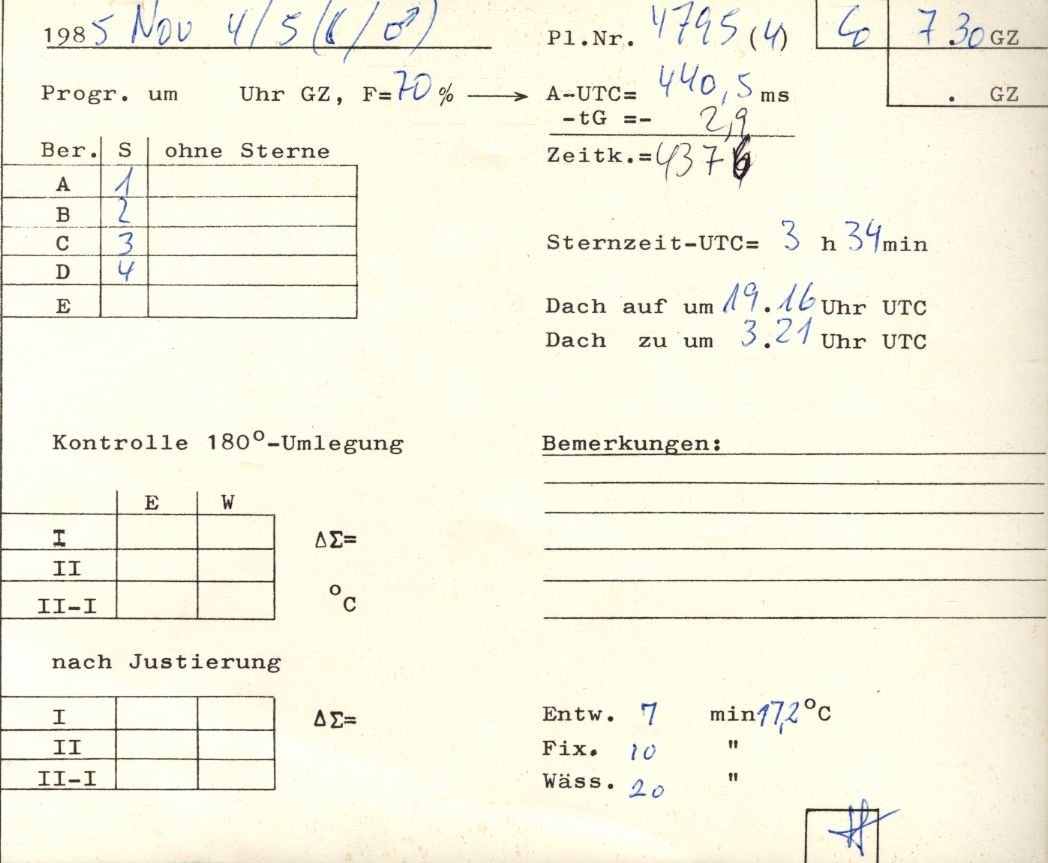 1985 Nov 4/5 (☾/♂) Pl.Nr. 4795 (4) 7.30 GZ
Progr. um Uhr GZ, F=70 % → A-UTC= 440,5 ms . GZ
-tG =- 2,9
Ber. S ohne Sterne Zeitk.=437
A 1
B 2
C 3 Sternzeit-UTC= 3 h 34 min
D 4
E Dach auf um 19.16 Uhr UTC
Dach zu um 3.21 Uhr UTC
Kontrolle 180°-Umlegung Bemerkungen:
E W
I ΔΣ=
II
II-I °C
nach Justierung
I ΔΣ= Entw. 7 min 17,2 °C
II Fix. 10 "
II-I Wäss. 20 "